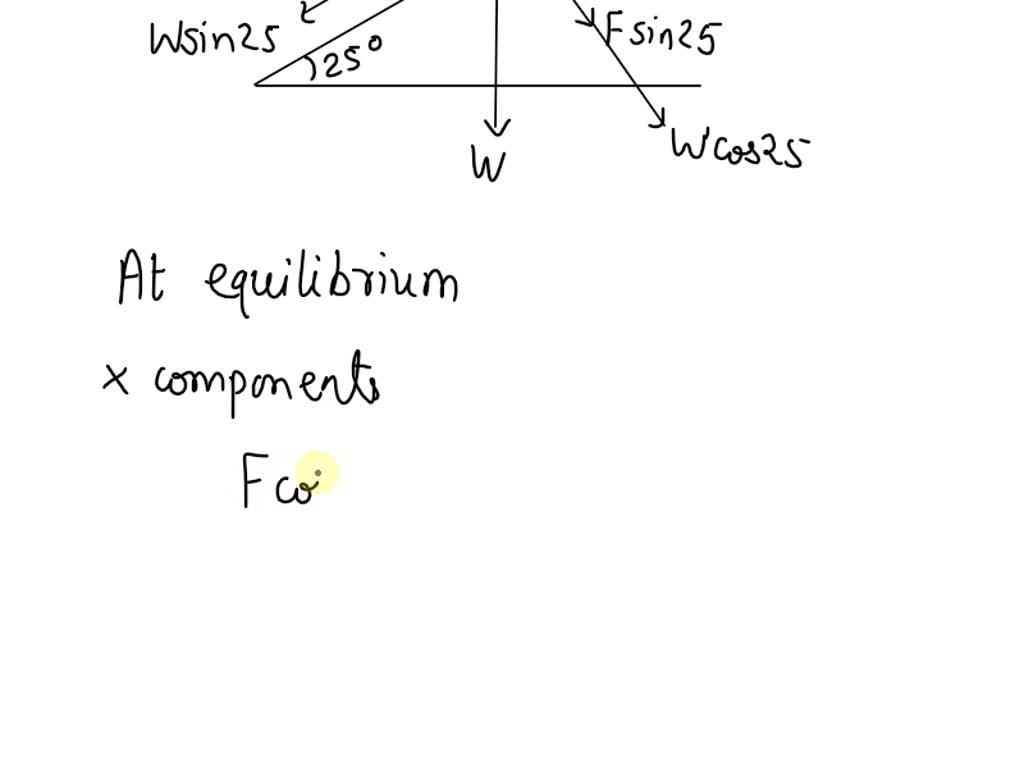 Wsin25
25°
Fsin25
Wcos25
W
At equilibrium
x components
F co